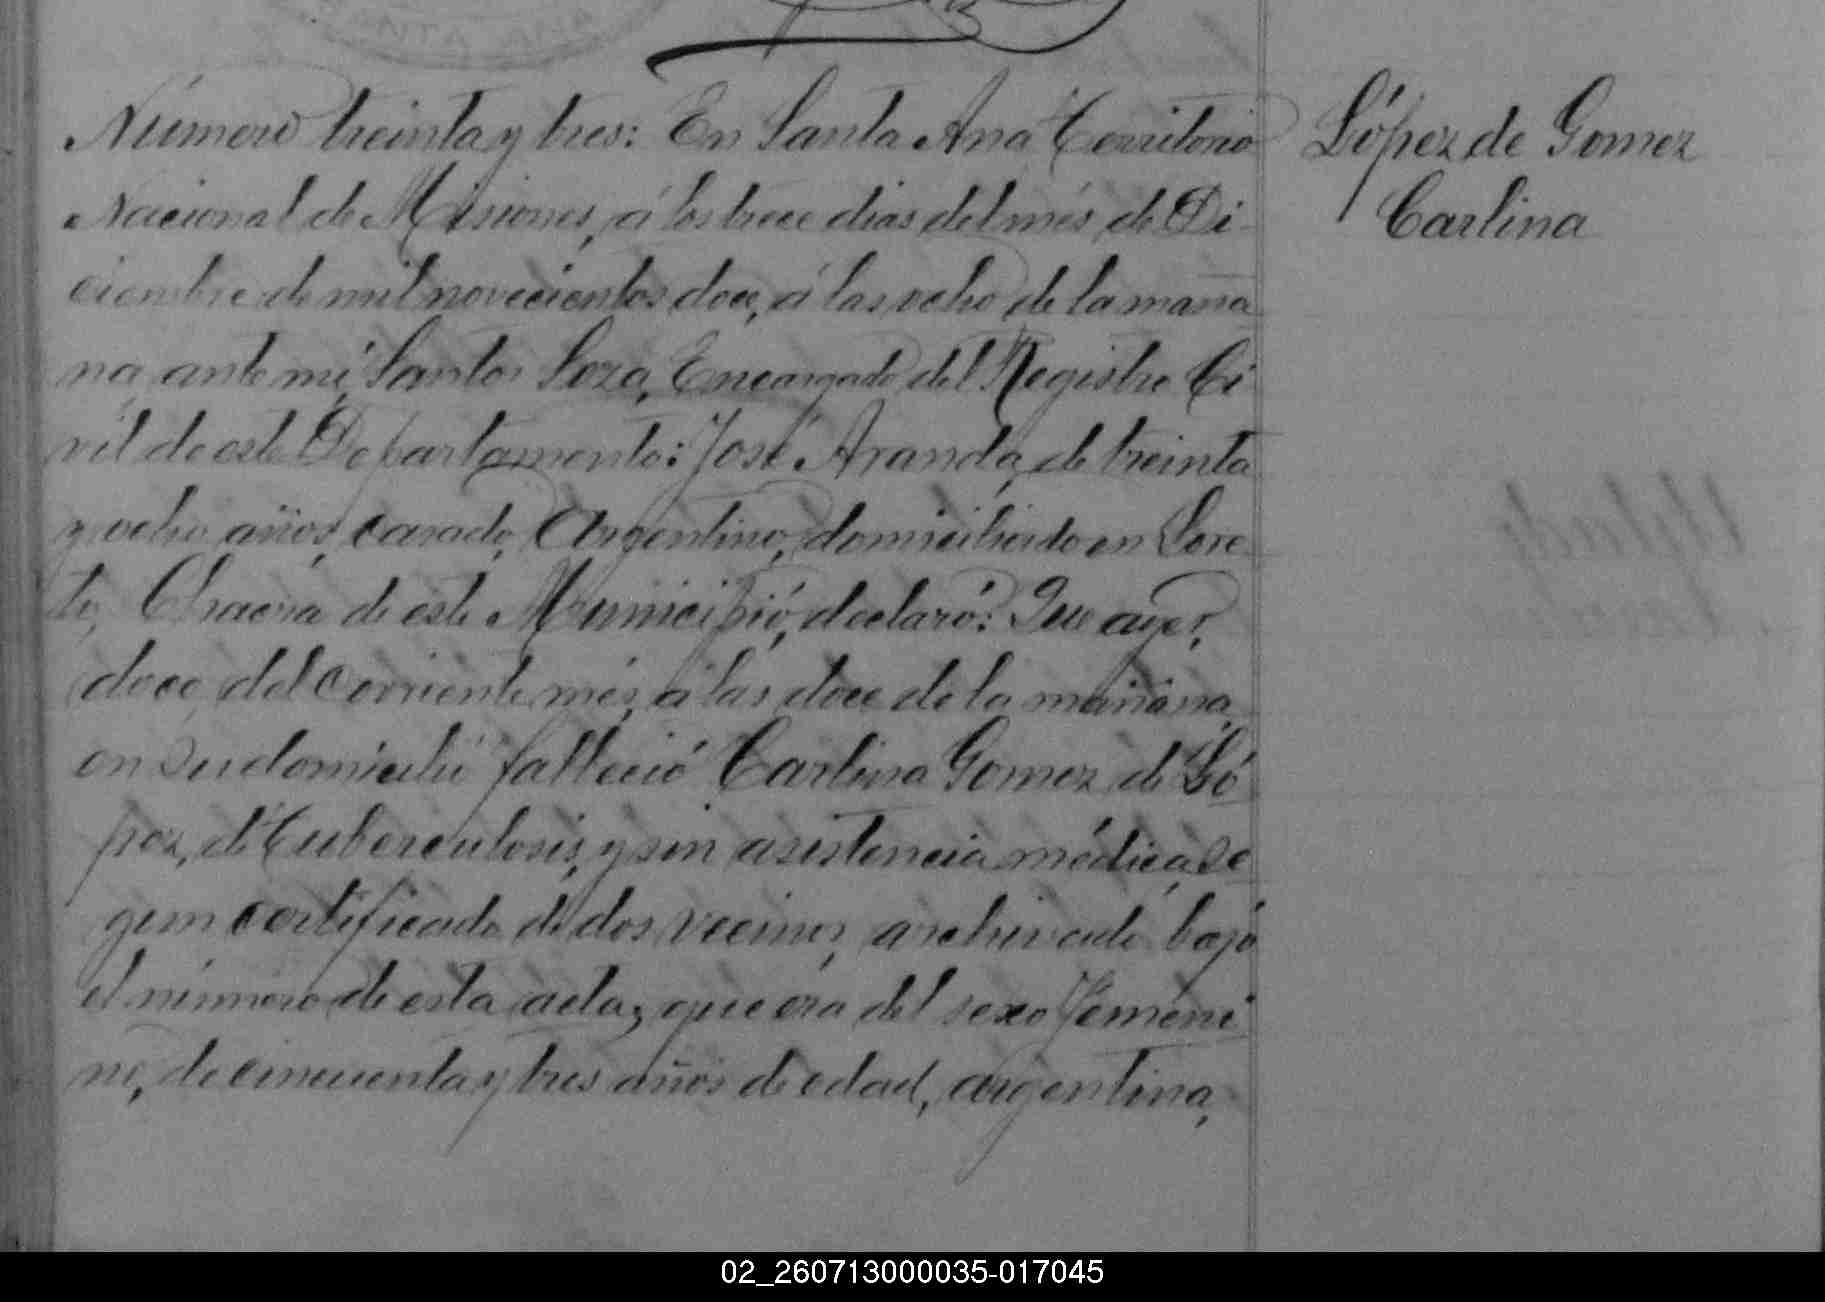 Número treinta y tres: En Santa Ana Territorio
Nacional de Misiones, á los trece dias del més de Di-
ciembre de mil novecientos doce, á las ocho de la maña
na, ante mi, Santos Soza, Encargado del Registro Ci
vil de este Departamento: José Aranda, de treinta
y ocho años, casado, Argentino, domiciliado en Lore
to, Chacra de este Municipió, declaró: Que ayer,
doce, del corriente més, á las doce de la mañana,
en su domicilio falleció Carlina Gomez de Ló
pez, de Tuberculosis, y sin asistencia médica, se
gun certificado de dos vecinos, archivado bajo
el número de esta acta; que éra del sexo Femeni
no, de cincuenta y tres años de edad, argentina,
López de Gomez
Carlina
02_260713000035-017045